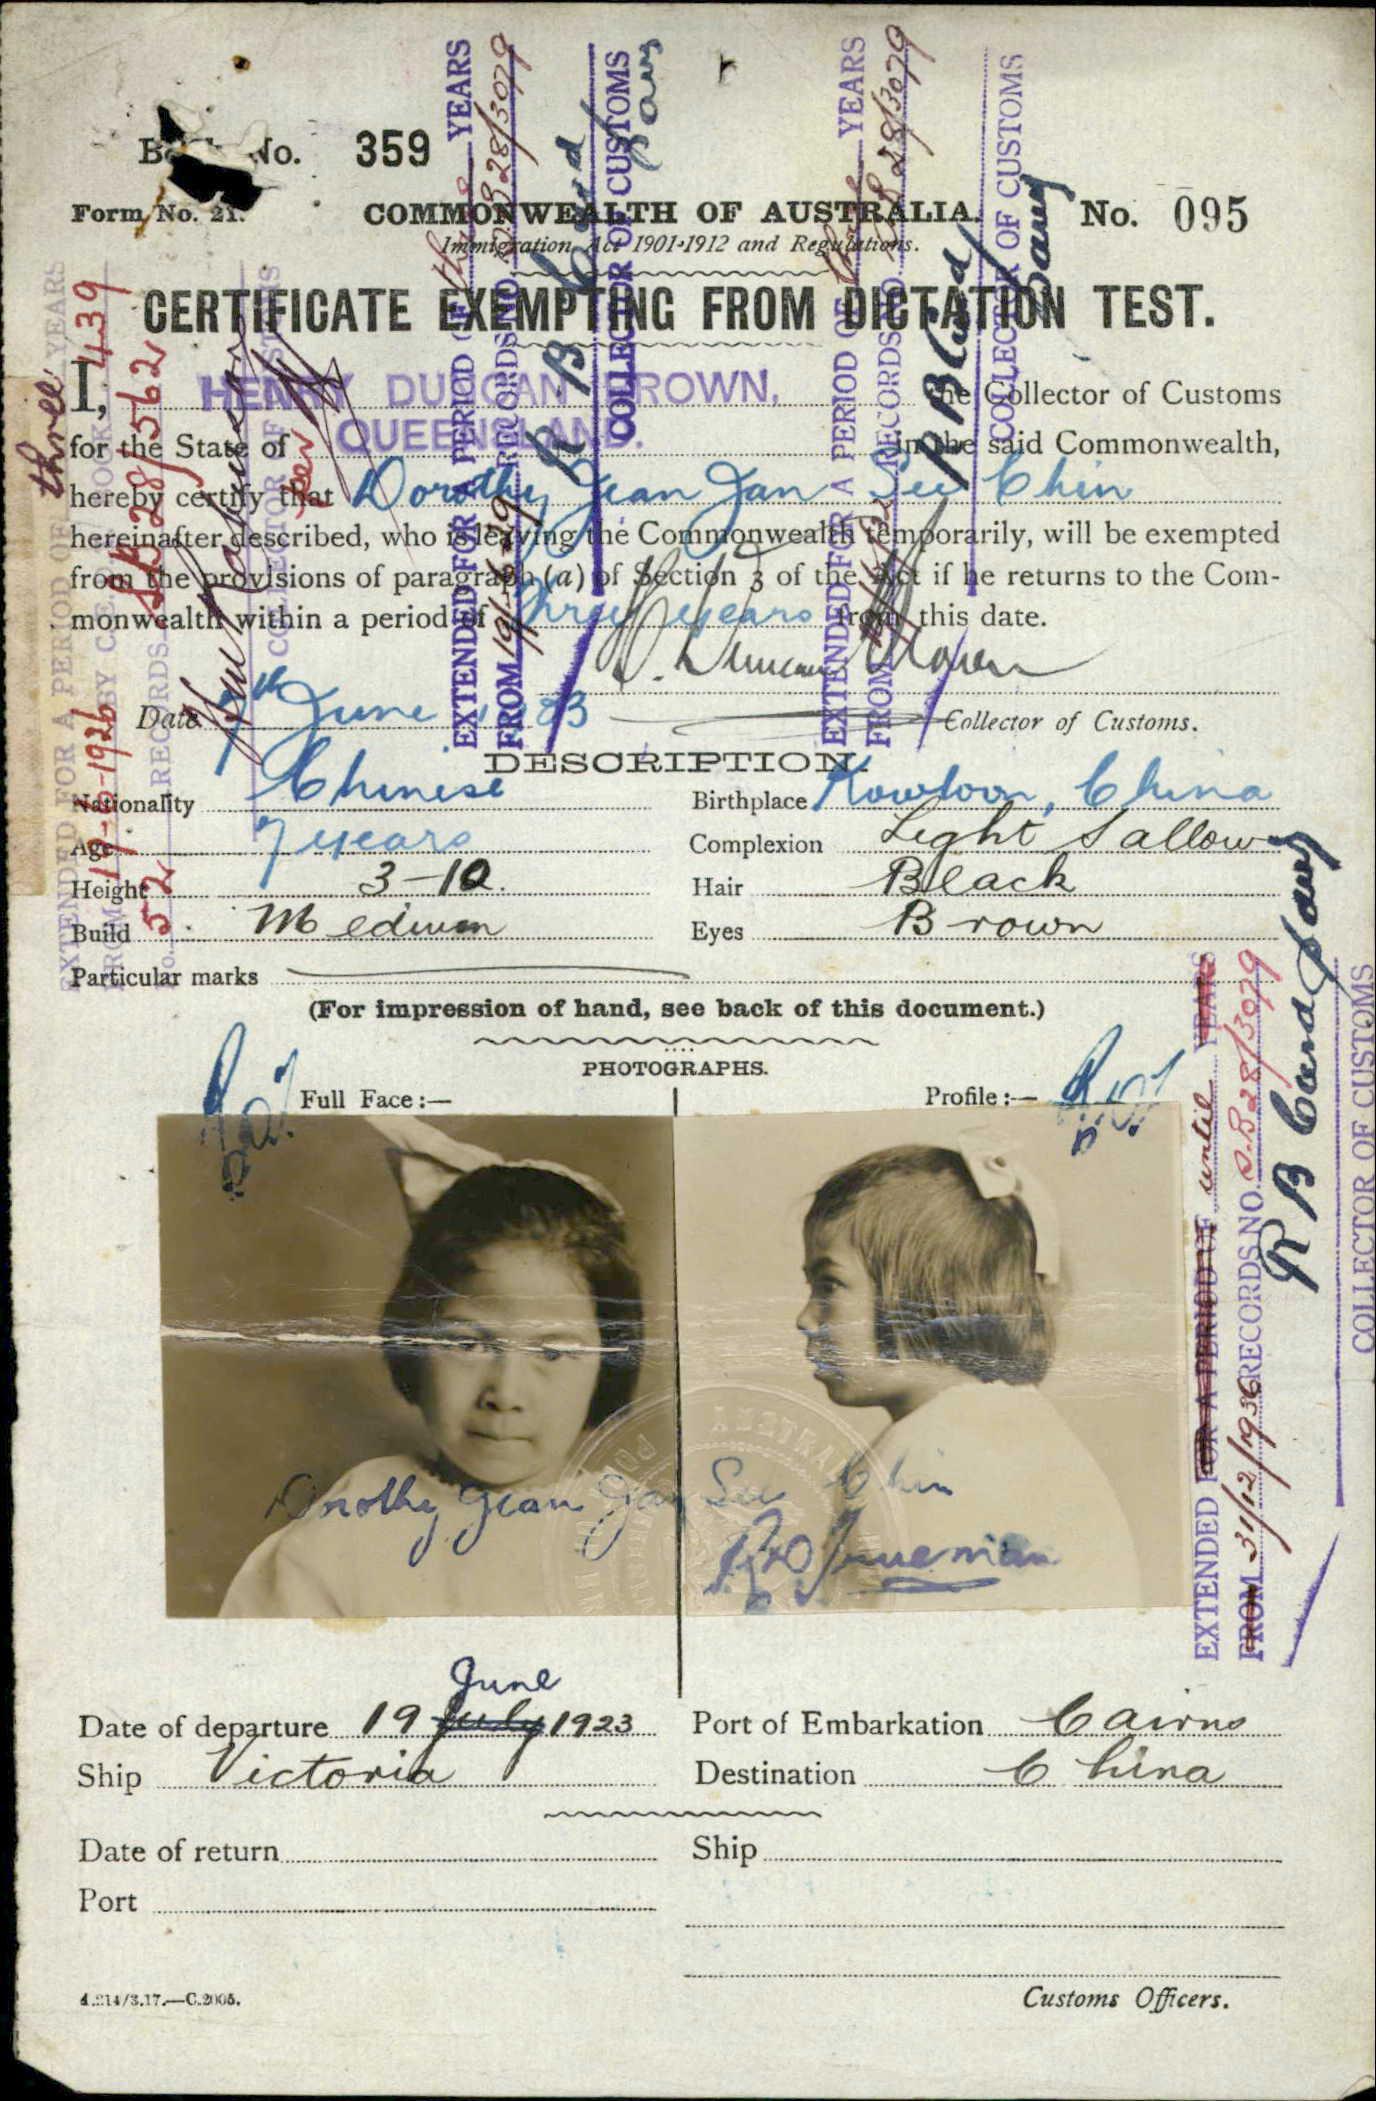 Book No. 359
Form No. 21. COMMONWEALTH OF AUSTRALIA. No. 095
Immigration Act 1901-1912 and Regulations.
CERTIFICATE EXEMPTING FROM DICTATION TEST.
I, HENRY DUNCAN BROWN, the Collector of Customs
for the State of QUEENSLAND. in the said Commonwealth,
hereby certify that Dorothy Jean Jan See Chin
hereinafter described, who is leaving the Commonwealth temporarily, will be exempted
from the provisions of paragraph (a) of Section 3 of the Act if he returns to the Com-
monwealth within a period of Three years from this date.
H. Duncan Brown
Date 7th June 1923 Collector of Customs.
DESCRIPTION.
Nationality Chinese Birthplace Kowloon, China
Age 7 years Complexion Light Sallow
Height 3-10. Hair Black
Build Medium Eyes Brown
Particular marks
(For impression of hand, see back of this document.)
PHOTOGRAPHS.
Full Face:— Profile:—
Dorothy Jean Jan See Chin
Date of departure 19 July June 1923 Port of Embarkation Cairns
Ship Victoria Destination China
Date of return Ship
Port
Customs Officers.
4.214/3.17.—C.2005.
EXTENDED FOR A PERIOD OF three YEARS
FROM 19-6-1926 BY C.E.D. BOOK 439
No. 52 RECORDS SB 28/562
COLLECTOR OF CUSTOMS
EXTENDED FOR A PERIOD OF three YEARS
FROM 19/6/29 RECORDS NO. SB 28/3079
COLLECTOR OF CUSTOMS
EXTENDED FOR A PERIOD OF three YEARS
FROM RECORDS NO. SB 28/3079
COLLECTOR OF CUSTOMS
EXTENDED FOR A PERIOD OF until YEARS
FROM 31/12/1936 RECORDS NO. S.B 28/3079
COLLECTOR OF CUSTOMS